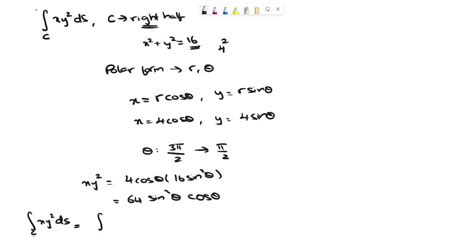 ∫_C xy² ds, C → right half
x² + y² = 16 2
4
Polar form → r, θ
x = r cosθ, y = r sinθ
x = 4 cosθ, y = 4 sinθ
θ: 3π/2 → π/2
xy² = 4 cosθ (16 sin²θ)
= 64 sin²θ cosθ
∫_C xy² ds = ∫